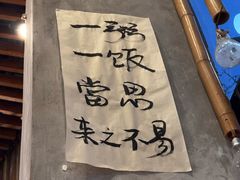 一粥
一饭
當思
来之不易